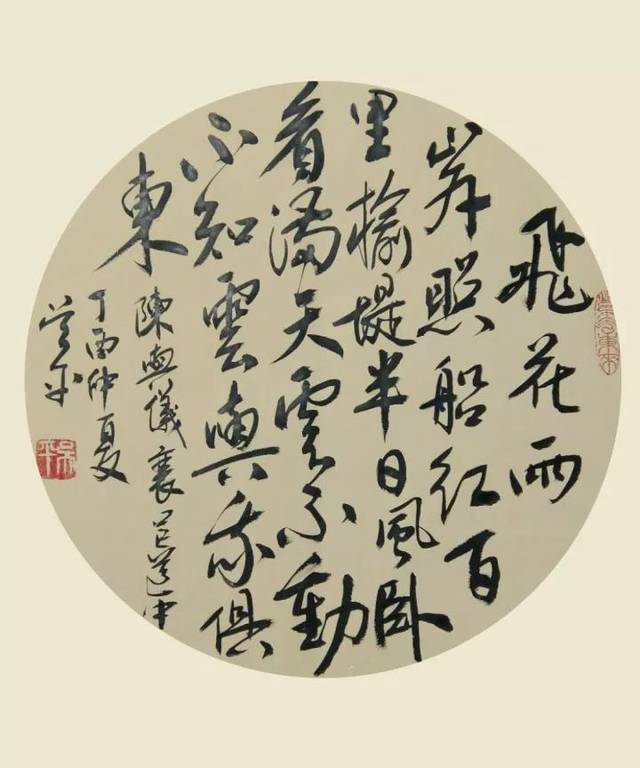 飛花兩
岸照船紅百
里榆堤半日風臥
看滿天雲不動
不知雲與我俱
東 陳與儀襄邑道中
丁酉仲夏